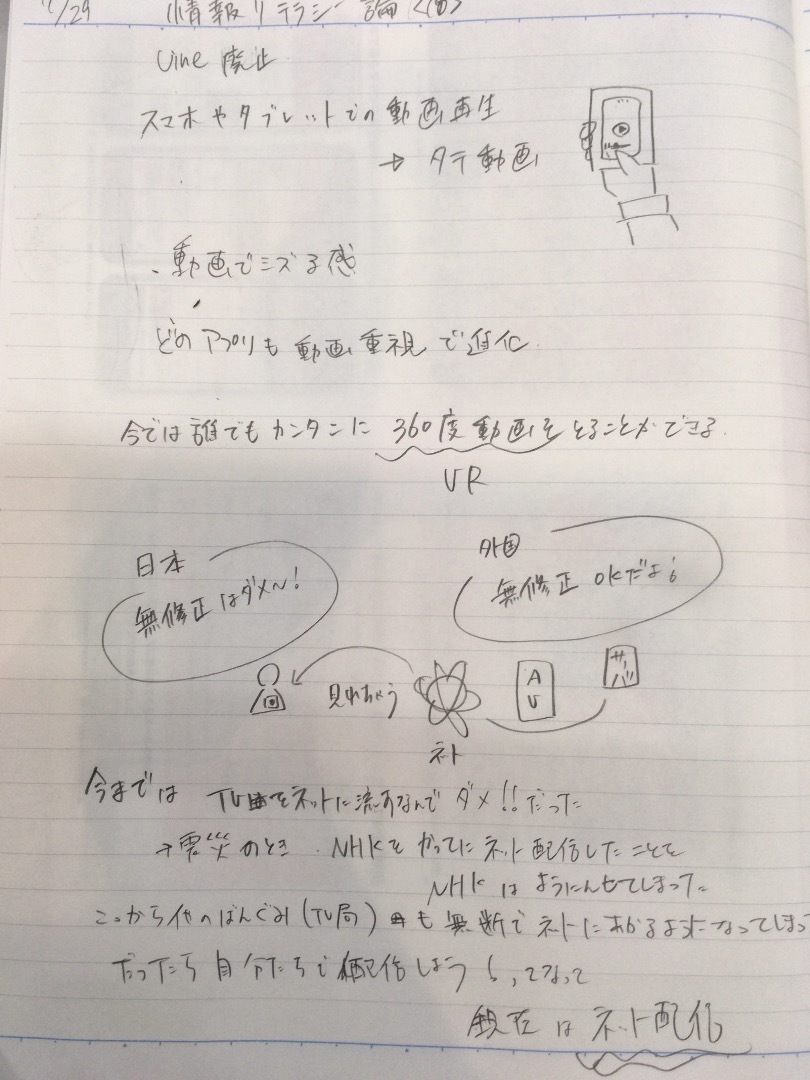 /29 情報リテラシー論
Vine 廃止
スマホやタブレットでの動画再生
→ タテ動画
、動画でミズる感
どのアプリも動画重視で進化
今では誰でもカンタンに 360度動画をとることができる.
VR
日本
無修正はダメ〜!
外国
無修正OKだよ
見れちゃう
ネト
AV
サーバ
今までは TV曲をネットに流すなんてダメ!!だった
→震災のとき NHKをかってにネット配信したことを
NHKはようにんせてしまった
こっから他のばんぐみ(TV局)も無断でネットにあがるようになってしまっ
だったら自分たちで配信しよう ってなって
現在はネット配信